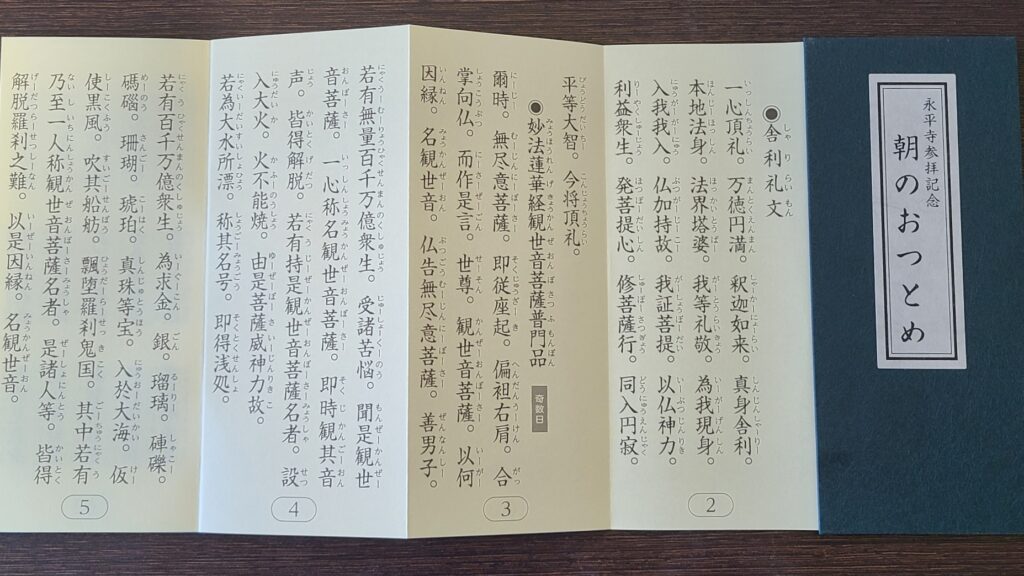 永平寺参拝記念
朝のおつとめ
●舎利礼文
一心頂礼。万徳円満。釈迦如来。真身舎利。
本地法身。法界塔婆。我等礼敬。為我現身。
入我我入。仏加持故。我証菩提。以仏神力。
利益衆生。発菩提心。修菩薩行。同入円寂。
2
平等大智。今将頂礼。
●妙法蓮華経観世音菩薩普門品 奇数日
爾時。無尽意菩薩。即従座起。偏袒右肩。合
掌向仏。而作是言。世尊。観世音菩薩。以何
因縁。名観世音。仏告無尽意菩薩。善男子。
3
若有無量百千万億衆生。受諸苦悩。聞是観世
音菩薩。一心称名観世音菩薩。即時観其音
声。皆得解脱。若有持是観世音菩薩名者。設
入大火。火不能焼。由是菩薩威神力故。
若為大水所漂。称其名号。即得浅処。
4
若有百千万億衆生。為求金。銀。瑠璃。硨磲。
碼碯。珊瑚。琥珀。真珠等宝。入於大海。仮
使黒風。吹其船舫。飄堕羅刹鬼国。其中若有
乃至一人称観世音菩薩名者。是諸人等。皆得
解脱羅刹之難。以是因縁。名観世音。
5